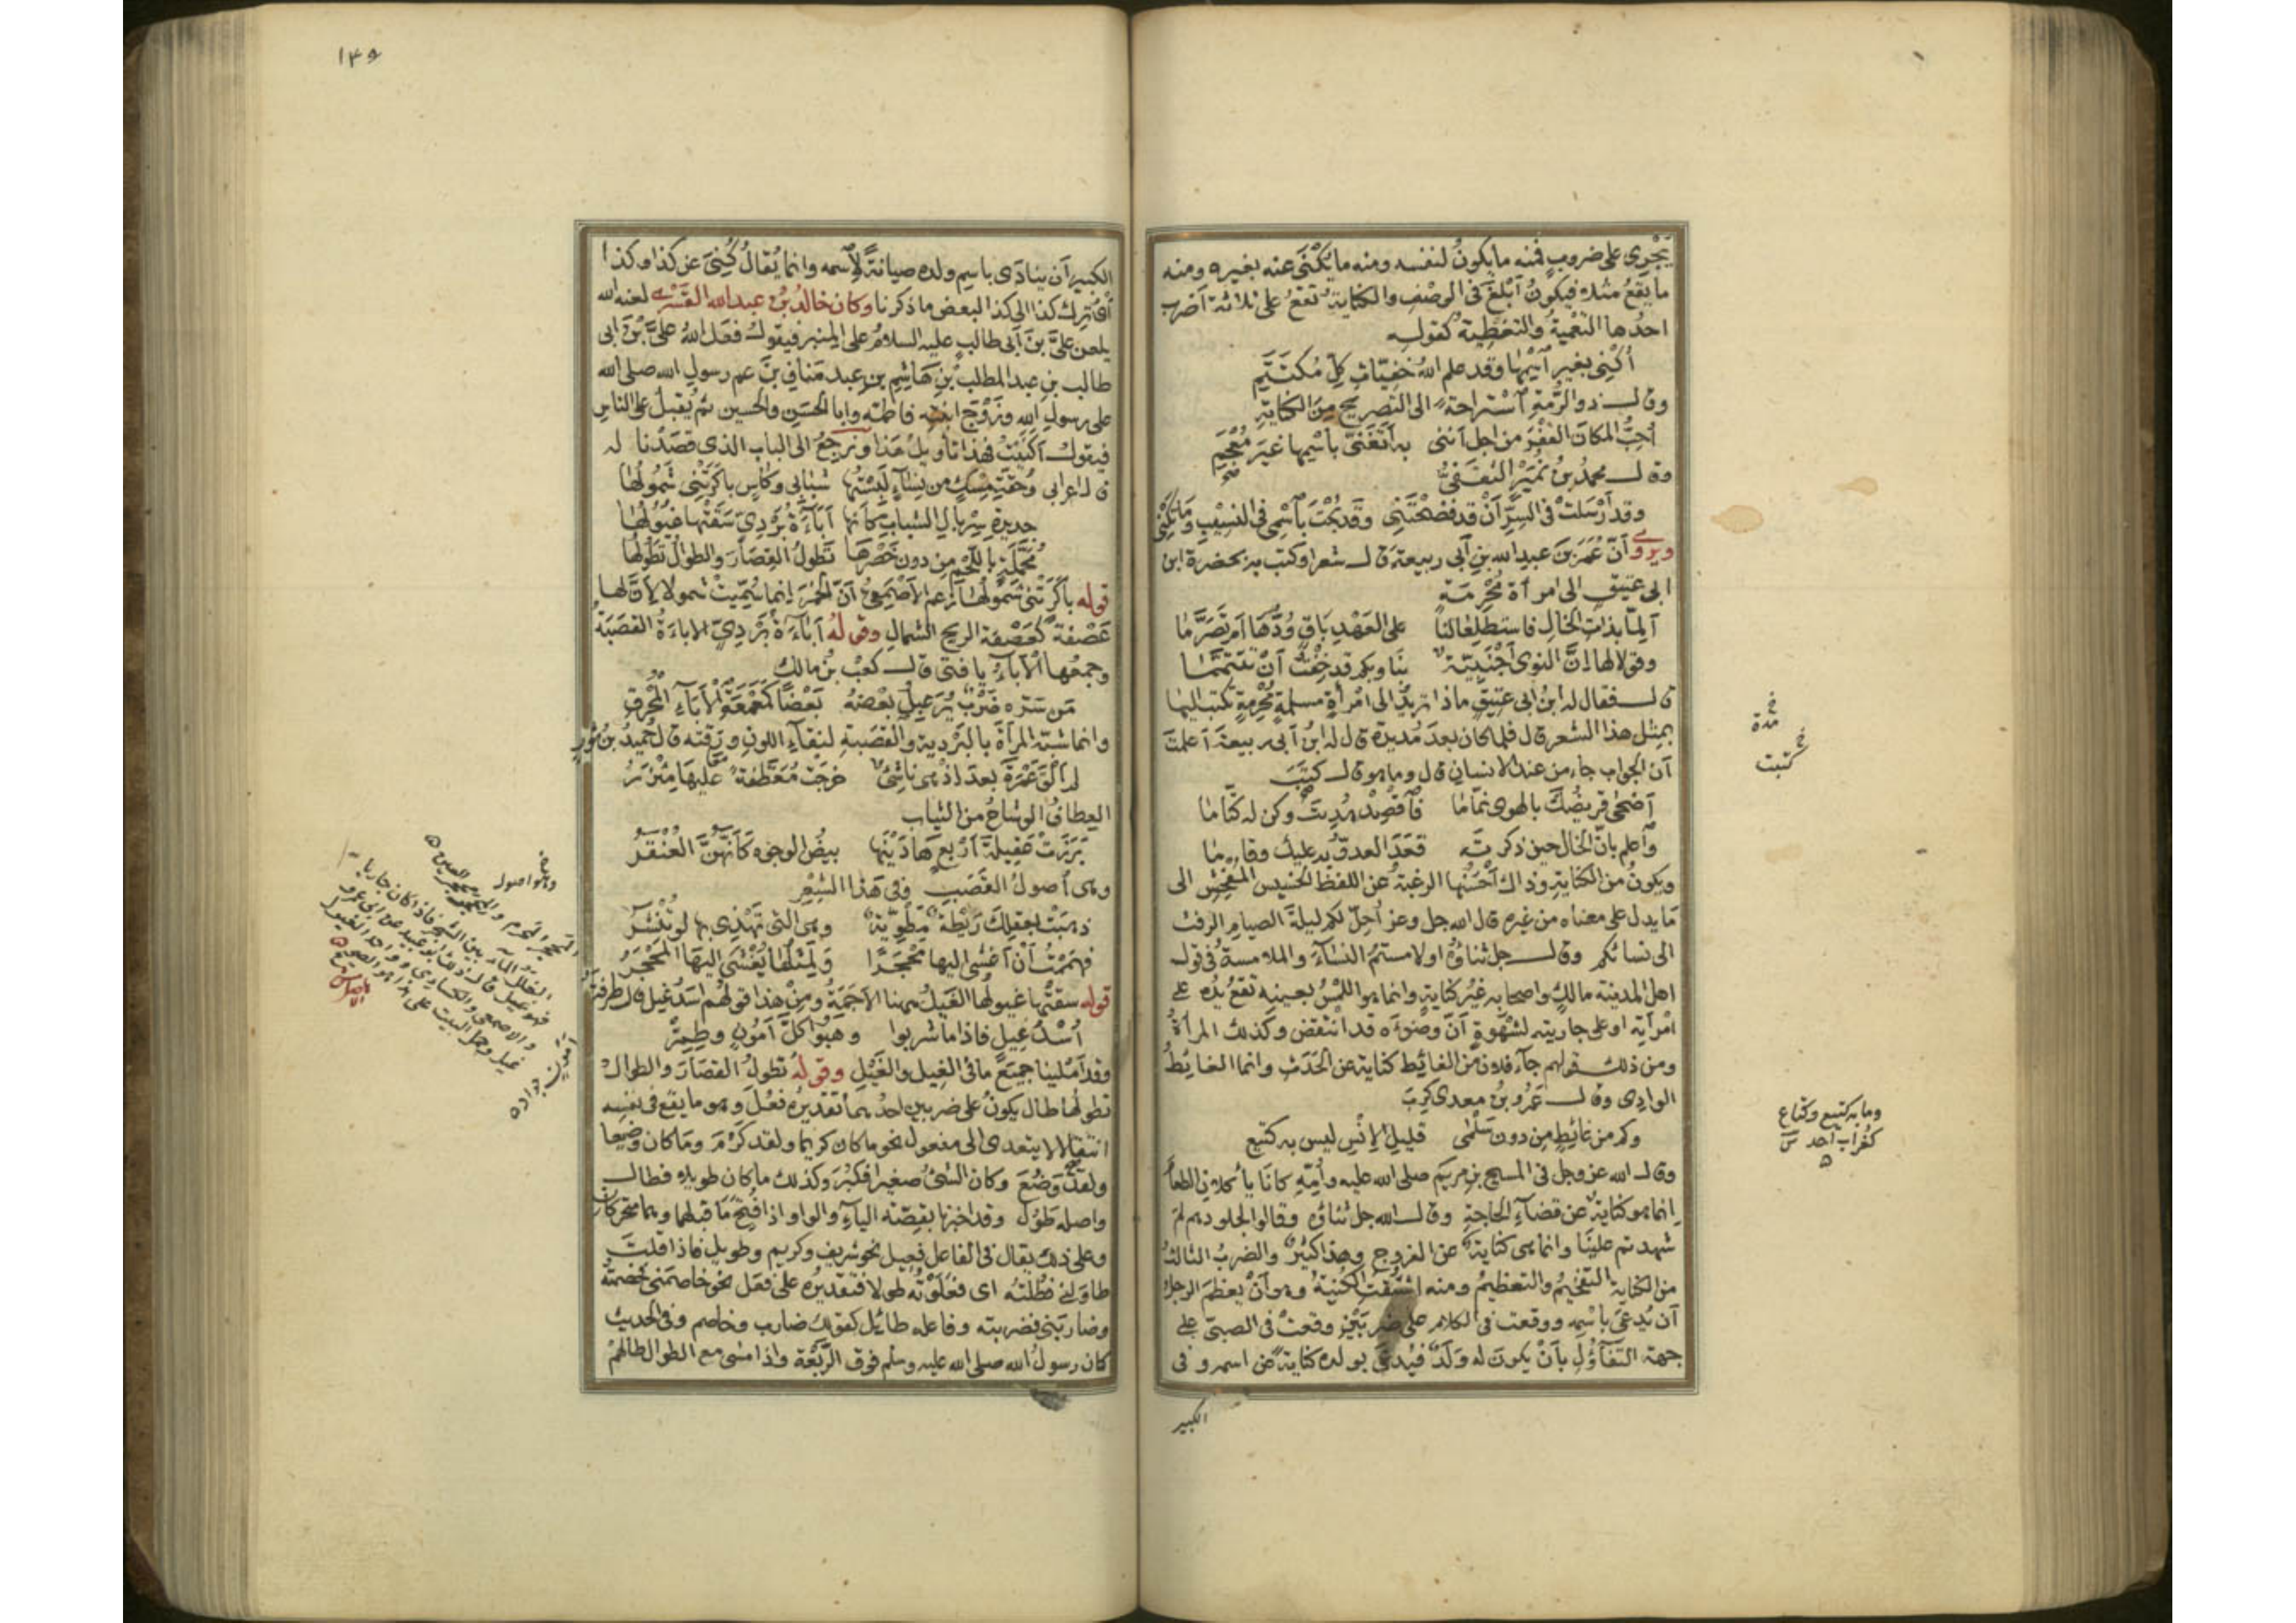 يَجْرِى على ضروبٍ فمنه ما يكونُ لنفسه ومنه ما يُكْنَى عنه بغيره ومنه
ما يقعُ مثلا فيكونُ أبْلغَ فى الوصْفِ والكنايةُ تقعُ على ثلاثة أضرب
احدُها التعْميةُ والتغطيةُ كقوله
أكْنِى بغير آسْمِها وقد علم اللهُ خفيّاتِ كلّ مُكتَتَمِ
وقال ذو الرّمّةِ آستراحةً الى التصريح مِنَ الكنايةِ
أحبُّ المكانَ القفْرَ من اجل أننى به أتَغَنّى بآسْمِها غيرَ مُعْجَمِ
وقال محمدُ بنُ نُمَيْرٍ الثقفىُّ
وقد أرْسَلتْ فى السِرّ أنْ قد فضحْتَنِى وقد بُحْتَ بآسْمِى فى النسِيْبِ وما تكْنِى
ويروى أنّ عُمَرَ بنَ عبدِ الله بنِ أبى ربيعة قال شعرا وكتب به بحضرة ابن
ابى عتيقٍ الى امرأة مُحْرِمَةٍ
ألِمّا بذاتِ الخالِ فاستطلِعا لنا على العَهْدِ بَاقٍ وُدُّهَا أم تَصَرَّمَا
وقولا لها إنّ النوى أجْنَبِيّةٌ بنا وبكم قد خِفْتُ أنْ تَتَيَمَّمَا
قال فقال له ابنُ ابى عتيقٍ ماذا تريدُ الى امرأةٍ مسلمةٍ مُحْرِمةٍ تكتب اليها
بمثل هذا الشعر قال فلما كان بعدَ مُديدةٍ قال له ابنُ أبى ربيعةَ أعلمتَ
أن الجواب جاء من عند الانسان قال وما هو قال كتبَتْ
أضْحَى قريضُكَ بالهوى نمّامَا فآقْصِدْ هُدِيتَ وكن له كتّامَا
وآعلم بأنّ الخالَ حين ذكرتَه قعَدَ العدوّ به عليك وقاما
ويكونُ من الكنايةِ وذاك أحْسَنُها الرغبةُ عن اللفظ الخسِيس المُفْحِشِ الى
مَا يدل على معناه من غيره قال الله جل وعز أُحِلّ لكم ليلةَ الصيامِ الرفث
الى نسائكم وقال جل ثناؤُه او لامستمُ النسآءَ والملامسةُ فى قول
اهل المدينة مالكٍ واصحابِه غيرُ كنايةٍ وانما هو اللمْسُ بعينه تقعُ يدُه على
امْرأته او على جاريته لشهْوةٍ أنّ وضوءَه قد انتقض وكذلك المرأةُ
ومن ذلك قولهم جآء فلان من الغائِط كناية عن الحَدَثِ وانما الغائِطُ
الوادى وقال عَمْرُو بنُ معدى كَرِبَ
وكم من غائِطٍ من دون سَلْمَى قليلِ الإنْسِ ليس به كتيعُ
وقال الله عز وجل فى المسيح بنِ مريمَ صلى الله عليه وأُمّهِ كانَا يأكلانِ الطعامَ
إنما هو كنايةٌ عن قضآءِ الحاجةِ وقال الله جل ثناؤه وقالوا لجلودهم لمَ
شهدتم علينا وانما هى كنايةٌ عن الفروج وهذا كثيرٌ والضربُ الثالثُ
من الكنايةِ التفخيمُ والتعظيمُ ومنه اشتُقّتِ الكُنيَةُ وهو أنْ يعظمَ الرجلُ
أن يُدعَى باسْمِه ووقعت فى الكلام على ضربَيْنِ وقعتْ فى الصبىّ على
جهة التفآؤُل بأنْ يكونَ له ولَدٌ فيُدعَى بولده كنايةً عن اسمه وفى
الكبير
خ مدة
خ كتبت
وما به كتيع وكتاع
كغراب أحد س
١٣٥
الكبيرِ أن ينادَى باسمِ ولده صيانةً لآسْمه وانما يُقالُ كُنِىَ عن كذا وكذا
أى تُرِكَ كذا الى كذا لبعض ما ذكرنا وكان خالدُ بنُ عبد الله القَسْرِى لعنه الله
يلعن علىَّ بنَ أبى طالبٍ عليه السلامُ على المنبر فيقول فعَل اللهُ على علىّ بنِ ابى
طالب بنِ عبد المطلب بنِ هَاشِمِ بنِ عبد مَنافِ بنِ عم رسولِ الله صلى الله
على رسول الله وزَوْج ابنته فاطمة وابا الحسَنِ والحسين ثم يُقبلُ على الناسِ
فيقول أكَنَيْتُ فهذا تأويلُ هذا ونرجعُ الى الباب الذى قصَدْنا له
قال اعرابى وحُقّةِ مِسْكٍ من نِسَآءٍ لَبِسْتُها شبَابِى وكأسٍ باكَرَتْنِى شَمُولُهَا
جديدةِ سِرْبالِ الشبابِ كأنها أبَآءَةُ بَرْدِىّ سَقَتْها غيولُها
مُخَمَّلَةٍ باللحْمِ من دون خَصْرِهَا تَطُولُ القِصَارَ والطوالُ تطُولُهَا
قوله باكَرَتْنى شَمُولُها زعم الاصمعىُّ أنّ الخمْرَ إنما سُمّيتْ شمولا لأنّ لها
عَصْفةً كعَصْفة الريح الشمالِ وقوله أبَآءَةُ بَرْدِىّ الاباءَةُ القصَبَةُ
وجمعُها الأبآءُ يا فتى قال كعبُ بنُ مالك
مَن سَرّه ضرْبٌ يُرَعبِلُ بعْضُهُ بَعْضًا كمَعْمَعةِ الأبآءِ المُحْرَقِ
وانما شبّه المرْأةَ بالبَرْدِيةِ والقصَبةِ لنقآءِ اللونِ ورِقته قال حُميدُ بنُ ثَوْرٍ
لم ألْقَ عَمْرَةَ بعدَ إذْ هى ناشِئٌ خرجَتْ مُعَطّفةً عَليْهَا مِئْزَرُ
العِطافُ الوشاحُ من الثياب
بَرَزَتْ عَقِيلةَ أرْبَعٍ هَادَيْنَها بيضِ الوجوه كَأنّهُنّ العُنْقَرُ
وهى أصولُ القَصَبِ وفى هَذا الشِعْرِ
ذهبَتْ بعقلِكَ رَيْطَةٌ مَطْوِيّةٌ وهى التى تُهْدَى بها لو تُنْشَرُ
فهمَمْتُ أنْ أغشَى اليها مَحْجَرًا ولَمِثْلُهَا يُغْشَى إليهَا المَحْجَرُ
قوله سقتْها غيولُها الغَيلُ ههنا الأجَمَةُ ومن هذا قولهُم اسَدُ غيلٍ قال طرفةُ
أُسْدُ غيلٍ فاذا ما شربوا وهَبُوا كلَّ أمُونٍ وطِمِرّْ
وقد أمْلينا جميعَ ما فى الغِيلِ والغَيْلِ وقوله تطولُ القصَارَ والطوالُ
تطولُها طال يكونُ على ضربين احدُهما تقديرُه فعُلَ وهو ما يقع فى نفسه
انتقالا لا يتعدى الى مفعول نحو ما كان كريما ولقد كَرُمَ وما كان وضيعا
ولقد وَضُعَ وكان الشئُ صغيرا فكبُرَ وكذلك ما كان طويلا فطال
واصله طَوُل وقد اخبرنا بقِصّة اليآءِ والواو اذا افُتِحَ ما قبلهما وهما متحركتان
وعلى ذلك يقال فى الفاعل فَعِيل نحو شريف وكريم وطويل فاذا قلتَ
طاوَلَنِى فطُلْتُه اى فعَلَوْتُه طولا فتقديرُه على فعَل نحو خاصَمَنى فخصمْتُه
وضاربَنى فضربته وفاعله طائِل كقولك ضارب وخاصم وفى الحديث
كان رسولُ الله صلى الله عليه وسلم فوق الرَّبْعَة واذا مشى مع الطوال طالهمْ